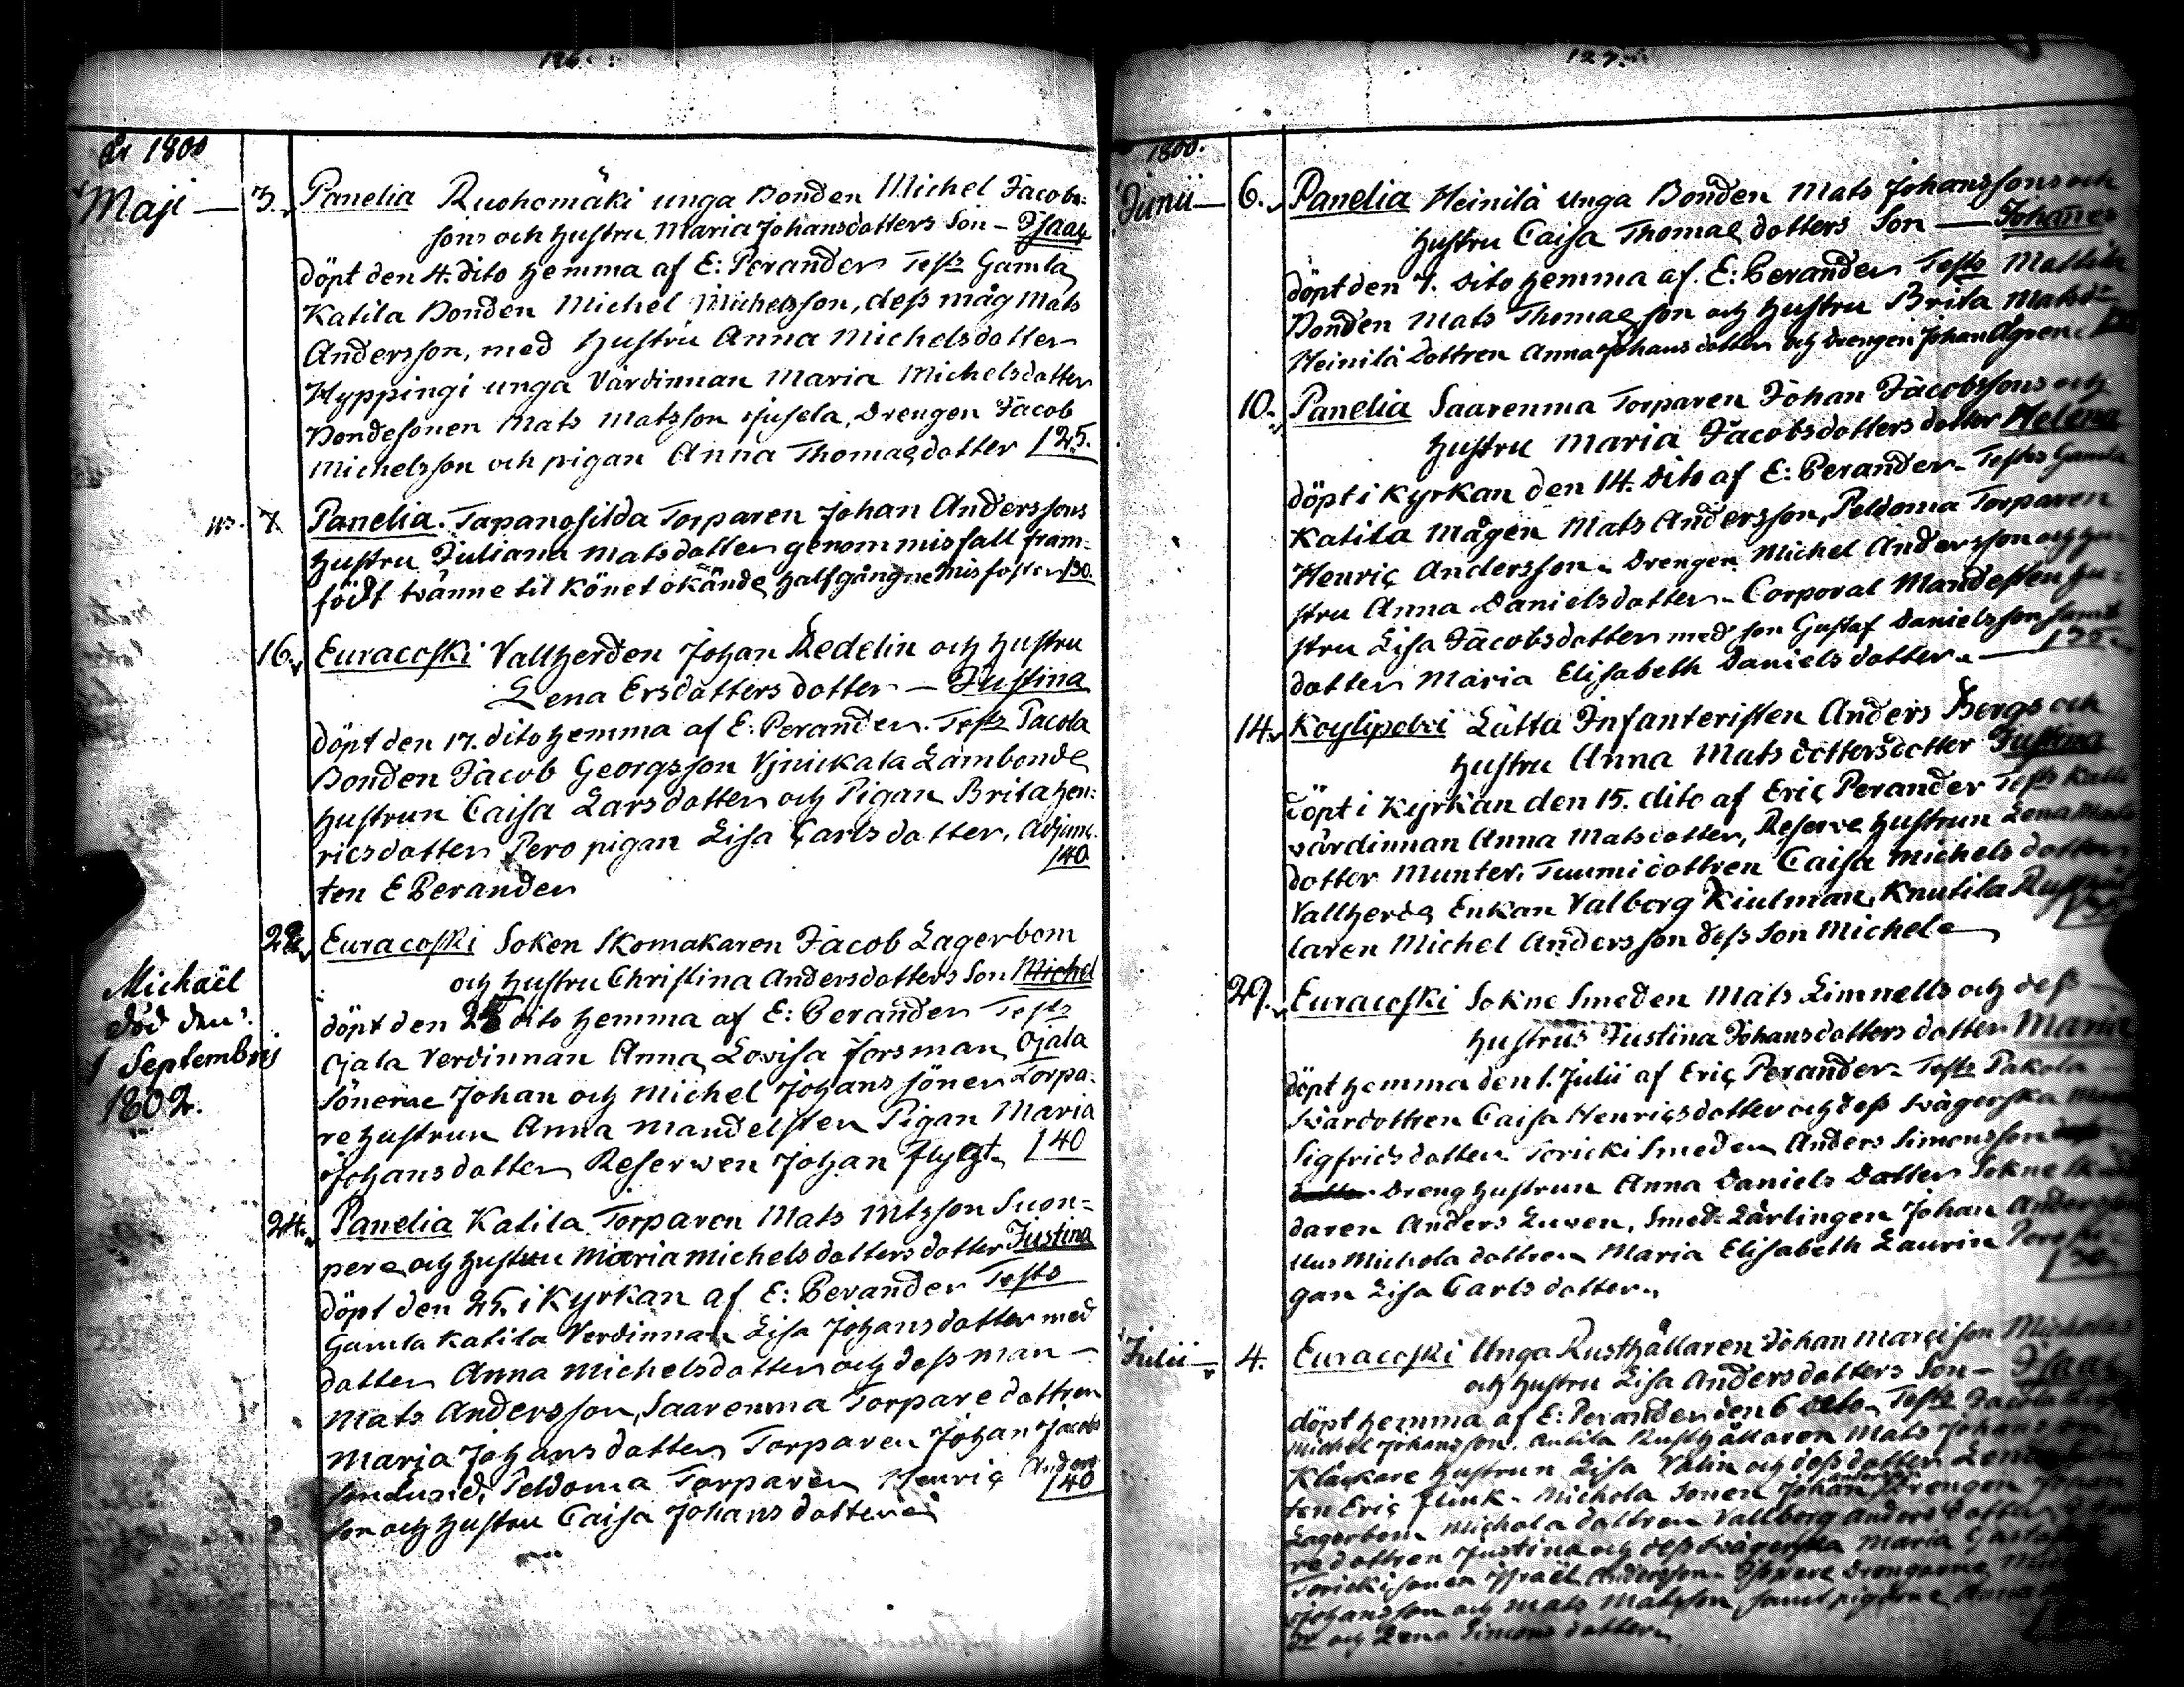 126.
År 1800
Maji — 3. Panelia Ruohomäki unga Bonden Michel Jacobs-
sons och hustru Maria Johansdotters Son — Isaac
döpt den 4. dito hemma af E: Perander Test: Gamla
Katila Bonden Michel Michelsson, dess måg Mats
Andersson, med hustru Anna Michelsdotter
Hyppingi unga Värdinnan Maria Michelsdotter
Bondesonen Mats Matsson Jusela, Drengen Jacob
Michelsson och pigan Anna Thomasdotter 125.
7. Panelia. Tapanosilda Torparen Johan Anderssons
hustru Juliana Matsdotter genom misfall fram-
födt tvänne til Könet okände halfgångne misfoster 130.
16. Euracoski Vallherden Johan Redelin och hustru
Lena Ersdotters dotter — Justina
döpt den 17. dito hemma af E: Perander. Test: Pacola
Bonden Jacob Georgsson Lambonde
hustrun Caisa Larsdotter och Pigan Brita Hen-
ricsdotter Pero pigan Lisa Carlsdotter, Adjunc-
ten E Perander 140
22. Euracoski Soken Skomakaren Jacob Lagerbom
och hustru Christina Andersdotters Son Michel
döpt den dito hemma af E: Perander Test:
Ojala Verdinnan Anna Lovisa Forsman Ojala
Sönerne Johan och Michel Johans söner Torpa-
re hustrun Anna Mandelsten Pigan Maria
Johansdotter Reserven Johan Flygt. 140
Michaël
död den
1 Septembris
1802.
24. Panelia Katila Torparen Mats Mtsson Suon-
pere och hustru Maria Michelsdotters dotter Justina
döpt den 25. i Kyrkan af E: Perander Test:
Gamla Katila Verdinnan Lisa Johansdotter med
dotter Anna Michelsdotter och dess man —
Mats Andersson, Saarenma Torpare dottren
Maria Johansdotter Torparen Johan Jacobs
son Lund, Peldoma Torparen Henric Anders-
son och hustru Caisa Johansdotter 140
127.
1800.
Junii — 6. Panelia Heinilä Unga Bonden Mats Johanssons och
hustru Caisa Thomasdotters Son — Johannes
döpt den 7. dito hemma af. E: Perander Test: Mattila
Bonden Mats Thomasson och hustru Brita Matsdr
Heinilä Dottren Anna Johansdotter och drengen Johan Agren
10. Panelia Saarenma Torparen Johan Jacobssons och
hustru Maria Jacobsdotters dotter Helena
döpt i Kyrkan den 14. dito af E: Perander. Test: Gamla
Katila Mågen Mats Andersson, Peldoma Torparen
Henric Andersson. Drengen Michel Andersson och hu-
stru Anna Danielsdotter. Corporal Mandelsten hu-
stru Lisa Jacobsdotter med son Gustaf Danielsson samt
dotter Maria Elisabeth Danielsdotter.
14. Köylipolvi Lätta Infanteristen Anders Bergs och
hustru Anna Matsdotters dotter Justina
döpt i Kyrkan den 15. dito af Eric Perander Test:
värdinnan Anna Matsdotter, Reserve hustrun Lena Mats
dotter Munter. Tuumi dottren Caisa Michelsdotter
Vallherde Enkan Valborg Kiulman, Knutila Rusthål-
laren Michel Andersson dess Son Michel
29. Euracoski Sokne Smeden Mats Limnells och dess —
hustrus Justina Johansdotters dotter Maria
döpt hemma den 1. Julii af Eric Perander. Test: Pakola —
Svärdottren Caisa Henricsdotter och dess svägerska
Sigfridsdotter. Toricki Smeden Anders Simonsson
Dreng hustrun Anna Daniels Dotter Sokne Skräd-
daren Anders Luren, Smed: Lärlingen Johan Andersson
Uus Michola dottren Maria Elisabeth Laurin Pero pi-
gan Lisa Carlsdotter.
Julii — 4. Euracoski Unga Rusthållaren Johan Marcisson Micholas
och hustru Lisa Andersdotters Son — Isaac
döpt hemma af E: Perander den 6 dito. Test:
Michel Johansson. Antila Rusthållaren Mats Johansson
Klåckare hustrun Lisa Valin och dess dotter Lena
ten Eric Flink. Michola Sonen Johan Andersson Drengen Johan
Lagerbom Michola dottren Vallborg Andersdotter
re dottren Justina och dess svägerska Maria Gustafs
Toricki sonen Israël Andersson. Drengarne
Johansson och Mats Matsson, samt pigorne Anna
och Lena Simonsdotter